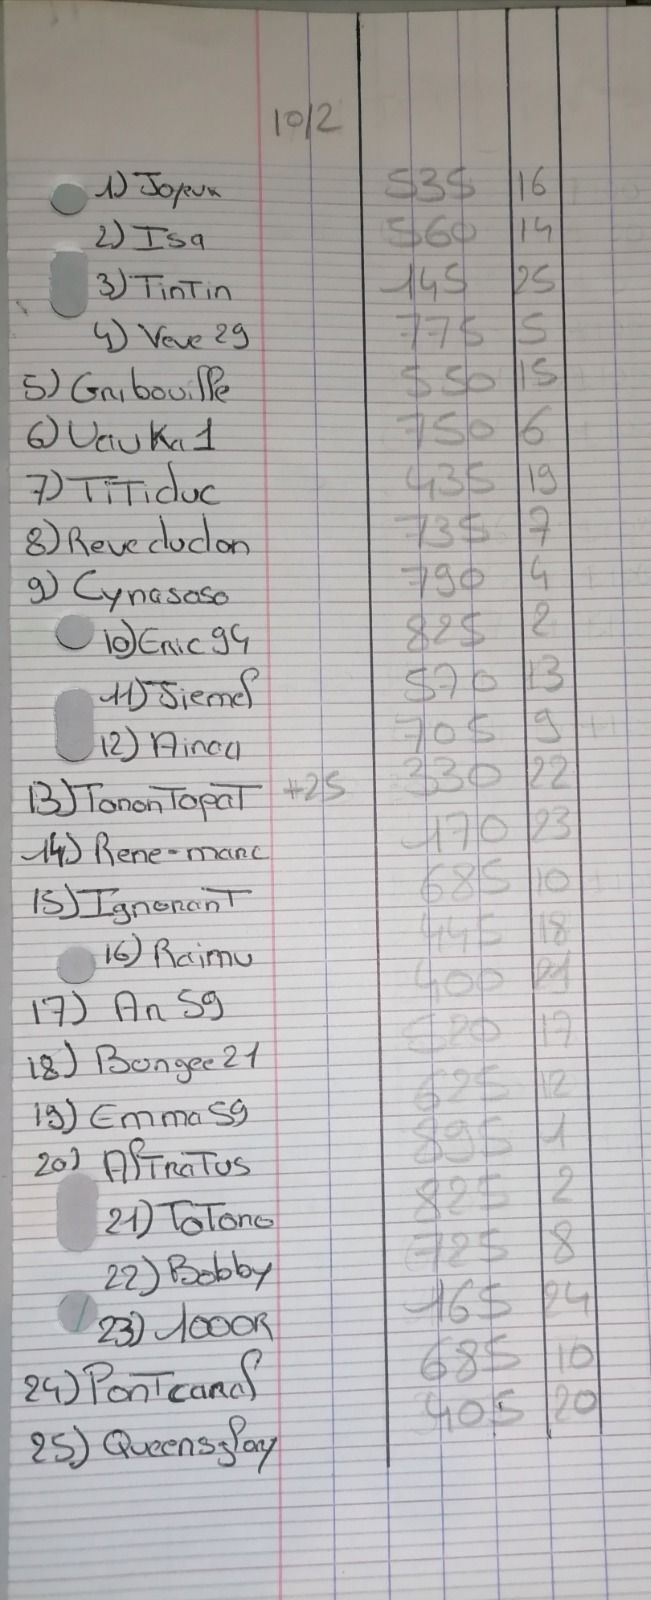 10/2
1) Jopux 535 16
2) Isa 560 14
3) TinTin 145 25
4) Veve 29 775 5
5) Gribouille 550 15
6) Vauka 1 750 6
7) TiTiduc 435 19
8) Reveduclon 735 7
9) Cynasoso 790 4
10) Eric 94 825 2
11) Siemel 570 13
12) 705 9
13) TononTapaT +25 330 22
14) Rene-marc 170 23
15) IgnoranT 685 10
16) Raimu 445 18
17) An 59 400 21
18) Bongee 21 520 17
19) Emma 59 625 12
20) AlTraTus 895 1
21) ToTono 825 2
22) Bobby 725 8
23) 1000R 165 24
24) PonTcanal 685 10
25) Queensplay 405 20